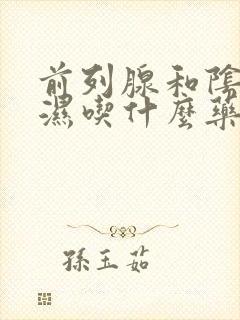 前列腺和陰
濕喫什麼藥
孫玉茹